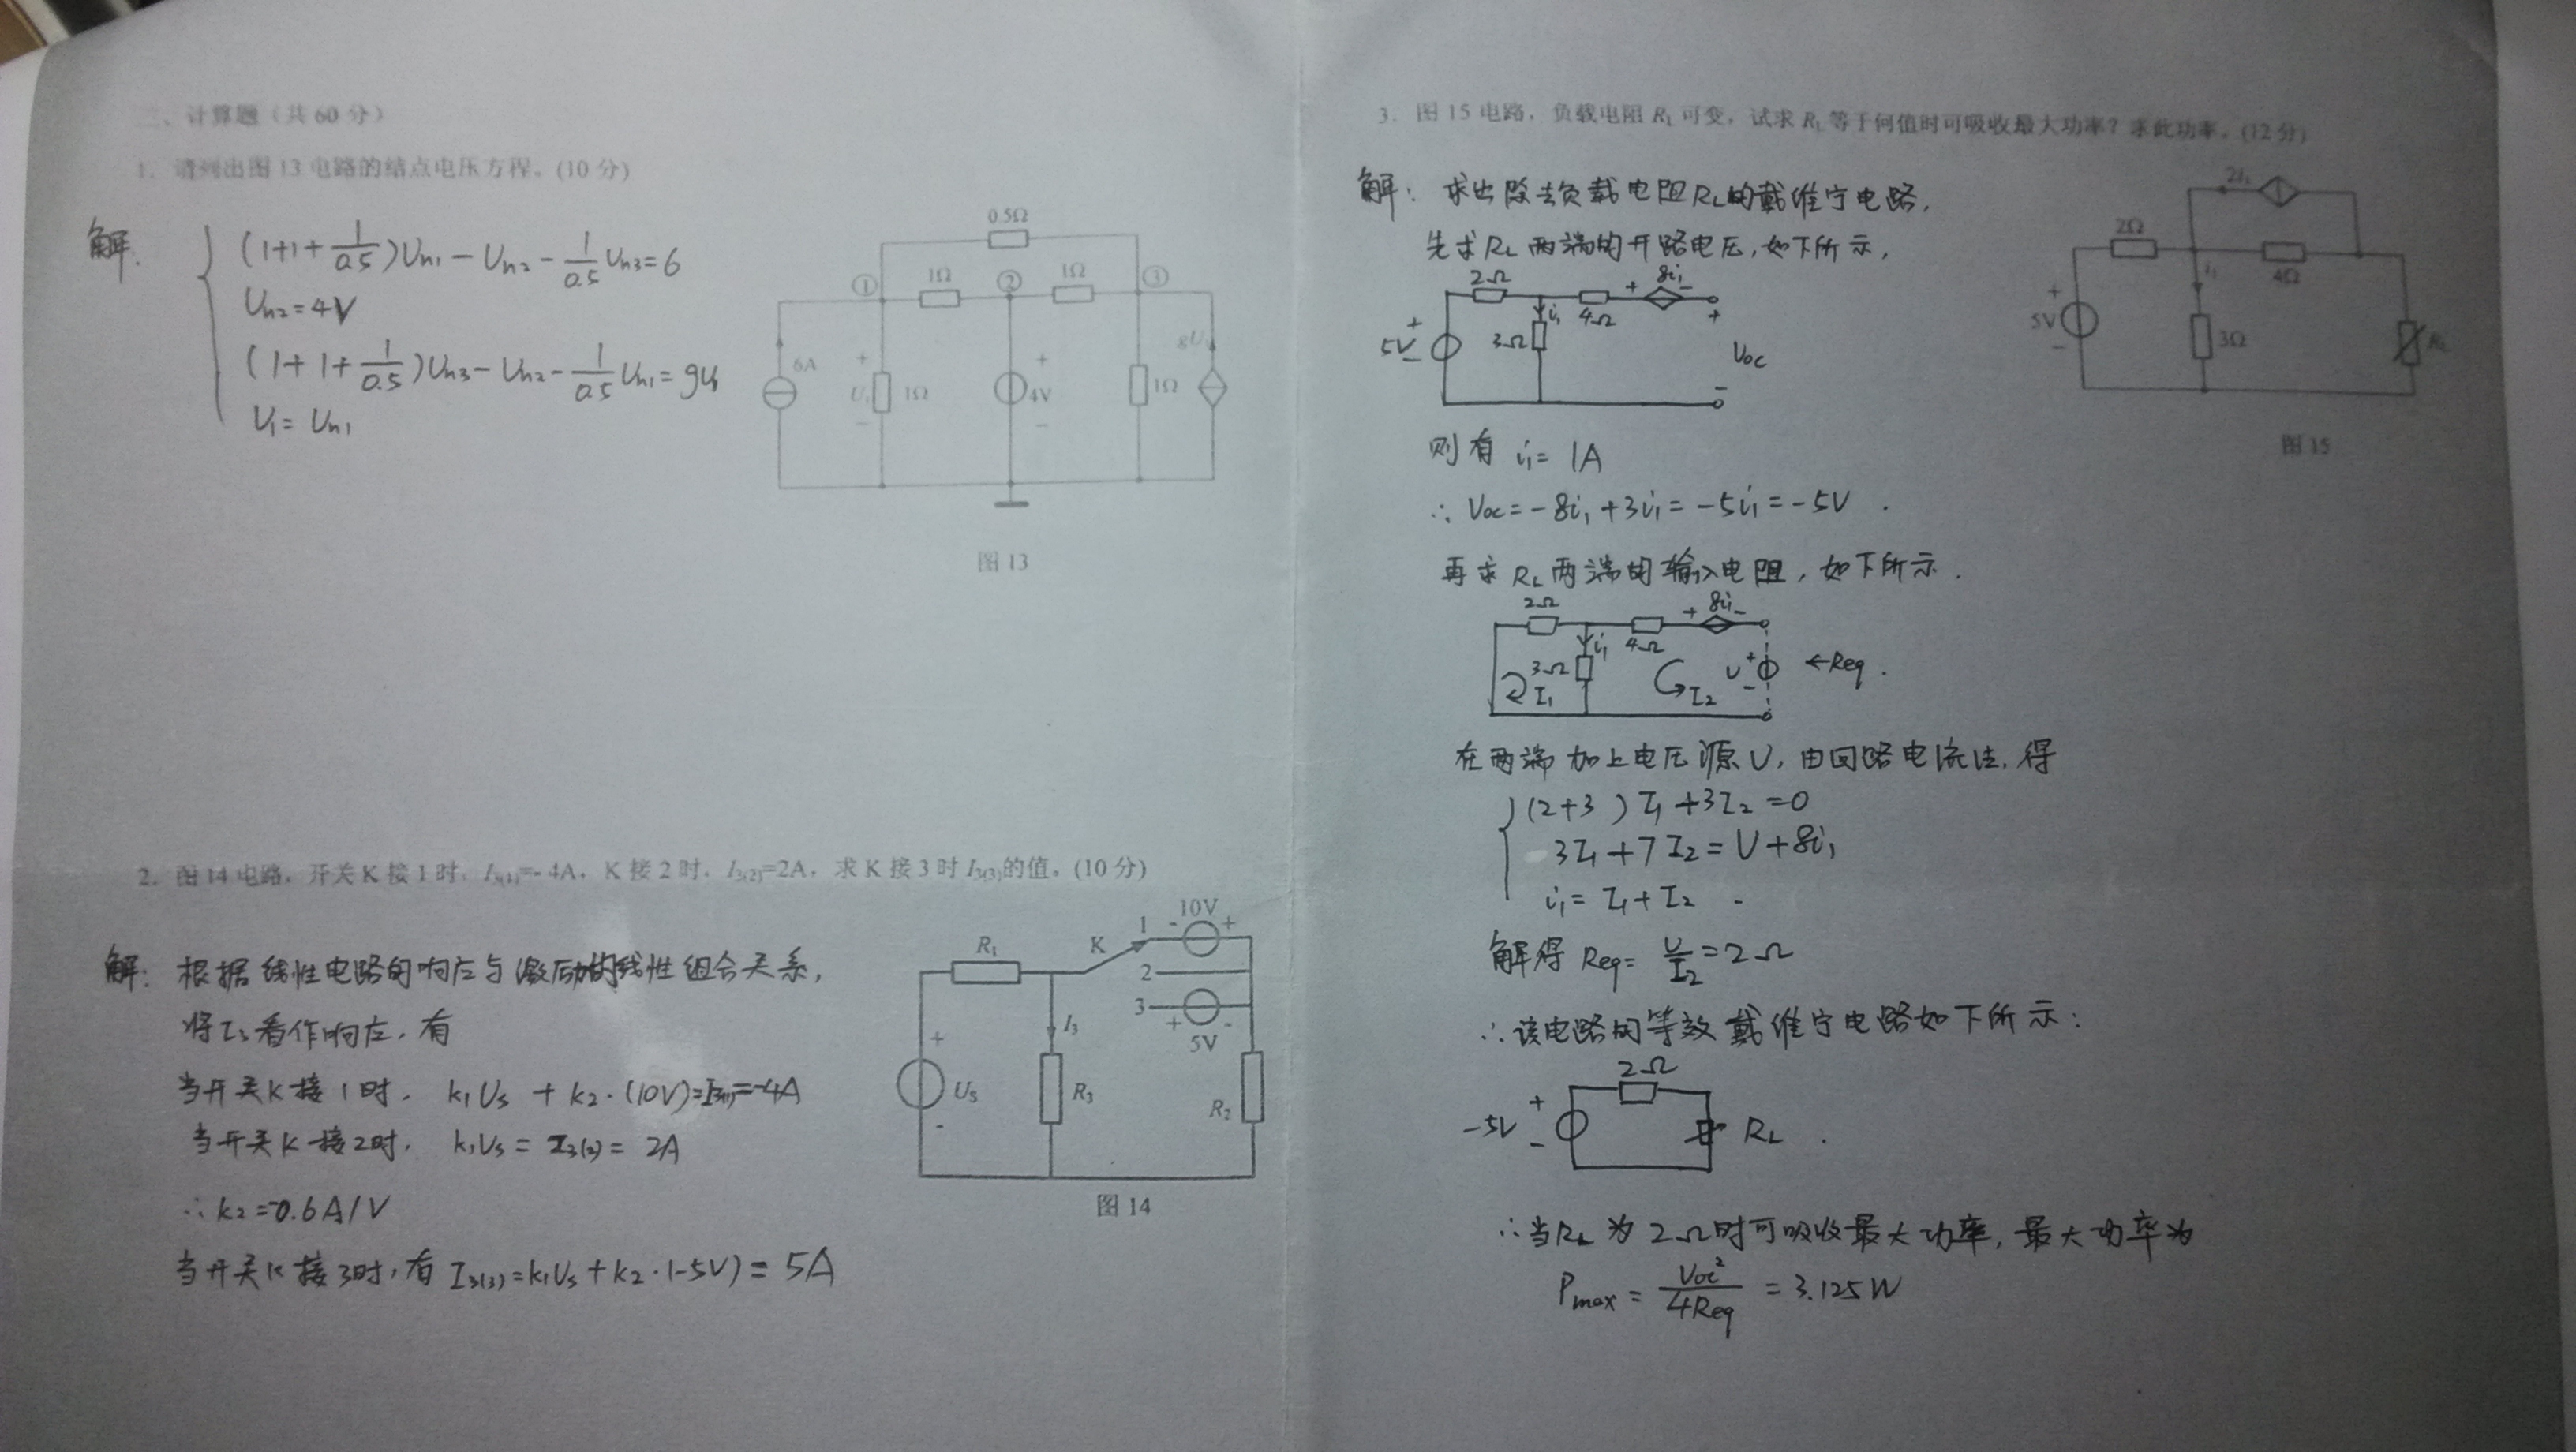 二、计算题（共 60 分）
1. 请列出图 13 电路的结点电压方程。(10 分)
解:
(1+1+1/0.5)Un1-Un2-1/0.5 Un3=6
Un2=4V
(1+1+1/0.5)Un3-Un2-1/0.5 Un1=gU1
U1=Un1
0.5Ω
① 1Ω ② 1Ω ③
6A + U1 - 1Ω + 4V - 1Ω gU1
图 13
2. 图 14 电路，开关 K 接 1 时，I3(1)=-4A，K 接 2 时，I3(2)=2A，求 K 接 3 时 I3(3)的值。(10 分)
解: 根据线性电路的响应与激励的线性组合关系,
将I3看作响应, 有
当开关K接1时, k1Us + k2·(10V)=I3(1)=-4A
当开关K接2时, k1Us = I3(2) = 2A
∴k2=-0.6A/V
当开关K接3时,有 I3(3)=k1Us+k2·(-5V)=5A
R1 K 1 - 10V +
2
3 + 5V -
I3
+ US - R3 R2
图 14
3. 图 15 电路，负载电阻 RL 可变，试求 RL 等于何值时可吸收最大功率？求此功率。(12 分)
解: 求出除去负载电阻RL的戴维宁电路,
先求RL两端的开路电压,如下所示,
2Ω + 8i1 -
i1 4Ω +
5V + - 3Ω Uoc
-
2i1
2Ω 4Ω
i1
+ 5V - 3Ω RL
图 15
则有 i1= 1A
∴ Uoc=-8i1+3i1=-5i1=-5V.
再求RL两端的输入电阻, 如下所示.
2Ω + 8i1 -
i1 4Ω
3Ω U + - ←Req.
I1 I2
在两端加上电压源U, 由回路电流法, 得
(2+3)I1+3I2=0
3I1+7I2=U+8i1
i1=I1+I2
解得 Req= U/I2=2Ω
∴该电路的等效戴维宁电路如下所示:
2Ω
-5V + - RL.
∴当RL为2Ω时可吸收最大功率, 最大功率为
Pmax = Uoc²/4Req = 3.125W